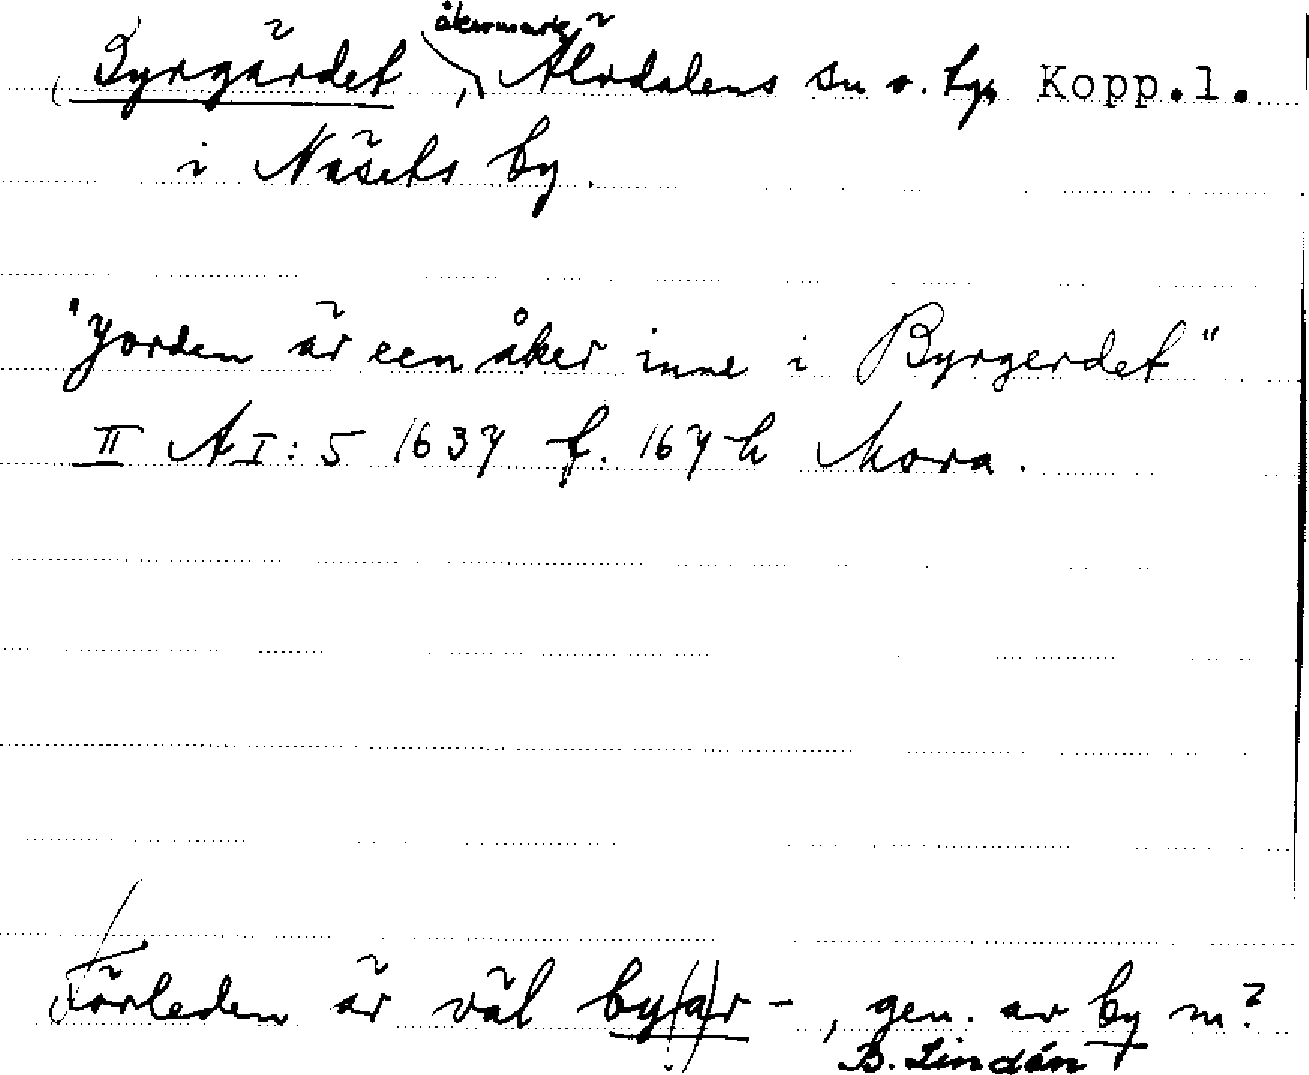 Byrgärdet, åkermark, Älvdalens sn o. tg. Kopp.l.
i Näsets by.
"Jorden är een åker inne i Byrgerdet"
II A I: 5 1637 f. 167 h Mora.
Förleden är väl by(a)r-, gen. av by m?
B. Lindén